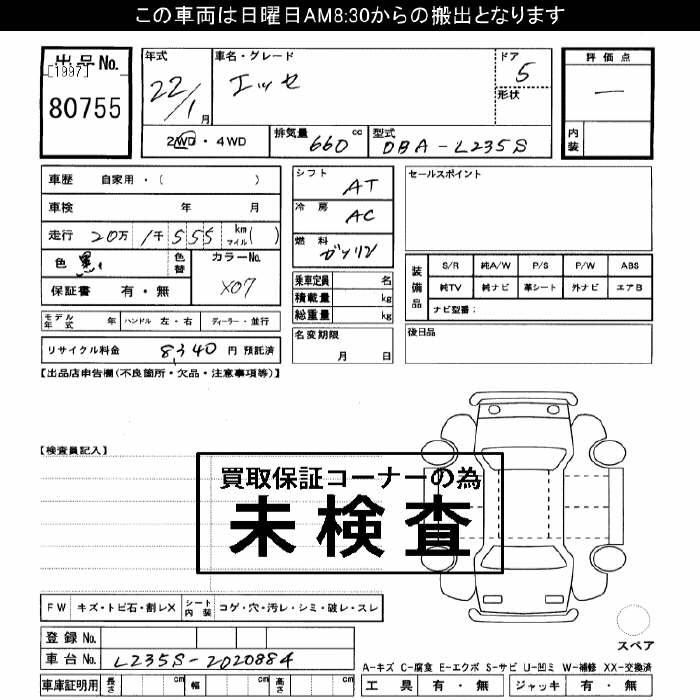 この車両は日曜日AM8:30からの搬出となります
出品No.
[1997]
80755
年式
22/1月
車名・グレード
エッセ
ドア
5
形状
評価点
—
内装
2WD・4WD
排気量 660 cc
型式 DBA-L235S
車歴 自家用・( )
車検 年 月
走行 20万 1千555 km マイル( )
色 黒
色替
カラーNo.
X07
保証書 有・無
シフト AT
冷房 AC
燃料 ガソリン
乗車定員 名
積載量 kg
総重量 kg
名変期限
月 日
セールスポイント
装備品
S/R 純A/W P/S P/W ABS
純TV 純ナビ 革シート 外ナビ エアB
ナビ型番:
後日品
モデル年式 年 ハンドル 左・右 ディーラー・並行
リサイクル料金 8,340 円 預託済
【出品店申告欄(不良箇所・欠品・注意事項等)】
【検査員記入】
買取保証コーナーの為
未検査
FW キズ・トビ石・割レX シート内装 コゲ・穴・汚レ・シミ・破レ・スレ
スペア
登録No.
車台No. L235S-2020884
A-キズ C-腐食 E-エクボ S-サビ U-凹ミ W-補修 XX-交換済
車庫証明用 長さ cm 幅 cm 高さ cm
工具 有・無 ジャッキ 有・無